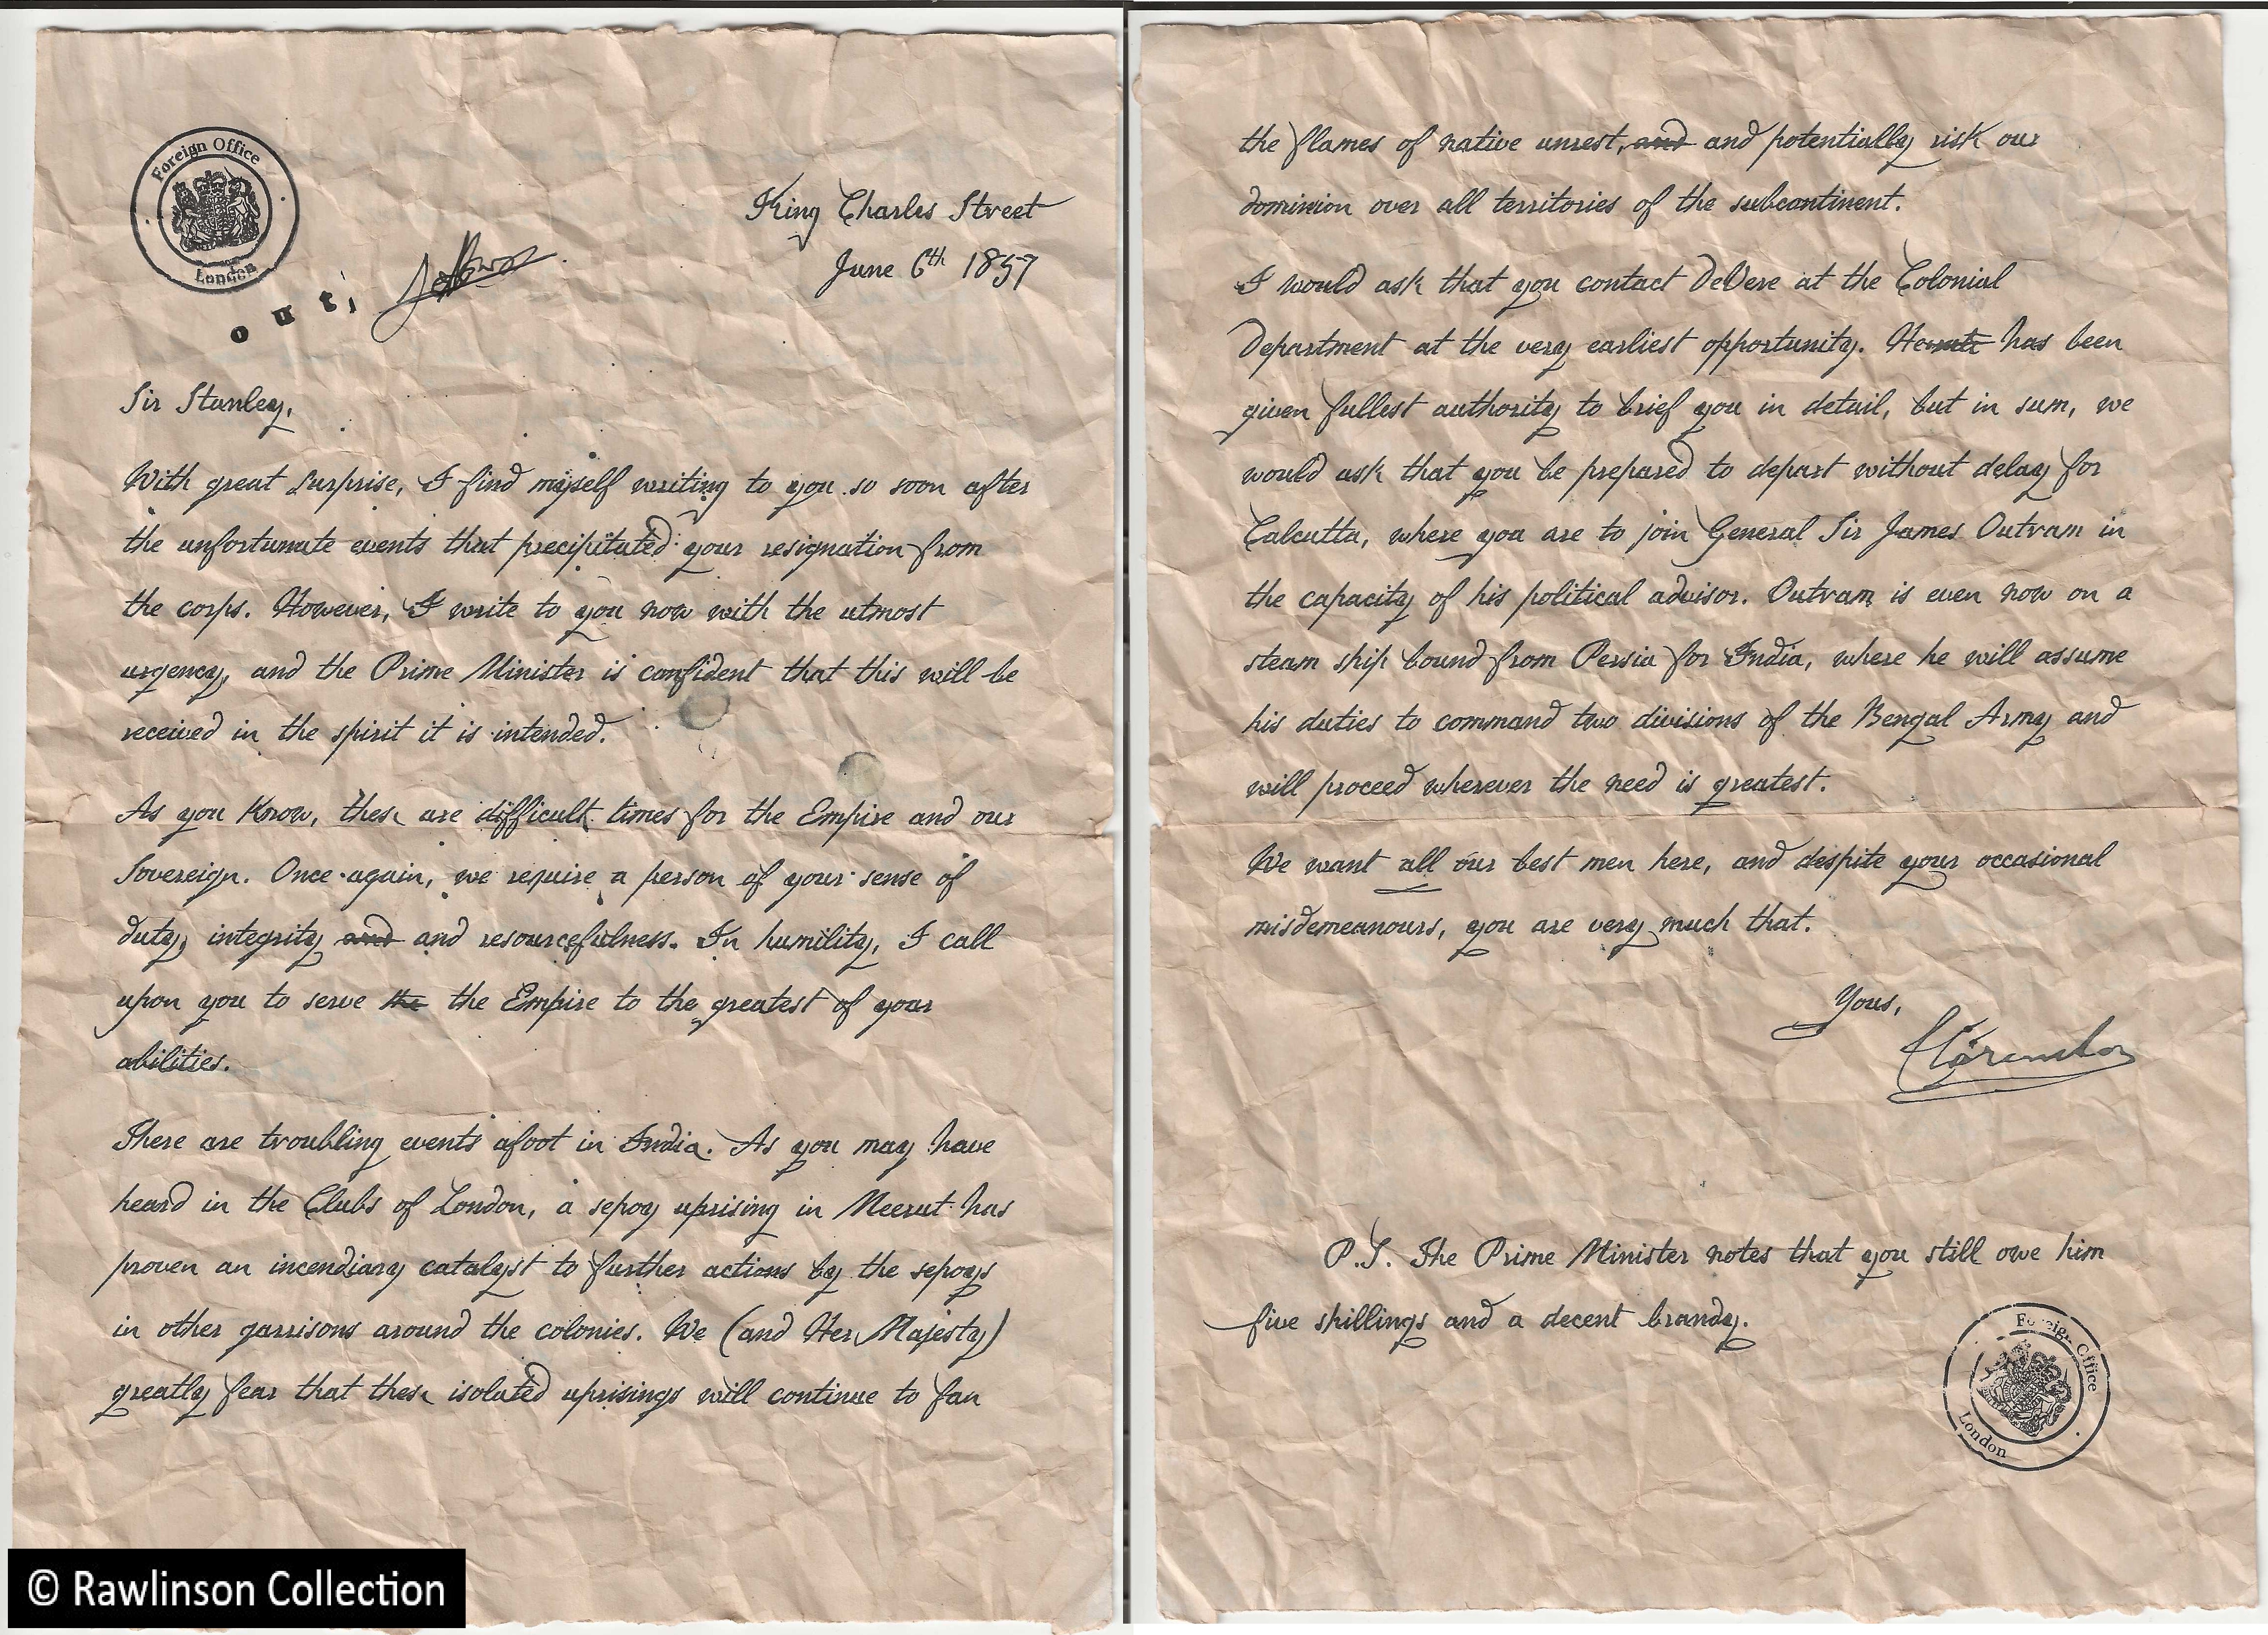 Foreign Office
London
outi
King Charles Street
June 6th 1857
Sir Stanley,
With great surprise, I find myself writing to you so soon after
the unfortunate events that precipitated your resignation from
the corps. However, I write to you now with the utmost
urgency, and the Prime Minister is confident that this will be
received in the spirit it is intended.
As you know, these are difficult times for the Empire and our
Sovereign. Once again, we require a person of your sense of
duty, integrity and and resourcefulness. In humility, I call
upon you to serve the the Empire to the greatest of your
abilities.
There are troubling events afoot in India. As you may have
heard in the Clubs of London, a sepoy uprising in Meerut has
proven an incendiary catalyst to further actions by the sepoys
in other garrisons around the colonies. We (and Her Majesty)
greatly fear that these isolated uprisings will continue to fan
© Rawlinson Collection
the flames of native unrest, and and potentially risk our
dominion over all territories of the subcontinent.
I would ask that you contact DeVere at the Colonial
Department at the very earliest opportunity. He has been
given fullest authority to brief you in detail, but in sum, we
would ask that you be prepared to depart without delay for
Calcutta, where you are to join General Sir James Outram in
the capacity of his political advisor. Outram is even now on a
steam ship bound from Persia for India, where he will assume
his duties to command two divisions of the Bengal Army and
will proceed wherever the need is greatest.
We want all our best men here, and despite your occasional
misdemeanours, you are very much that.
Yours,
Clarendon
P.S. The Prime Minister notes that you still owe him
five shillings and a decent brandy.
Foreign Office
London